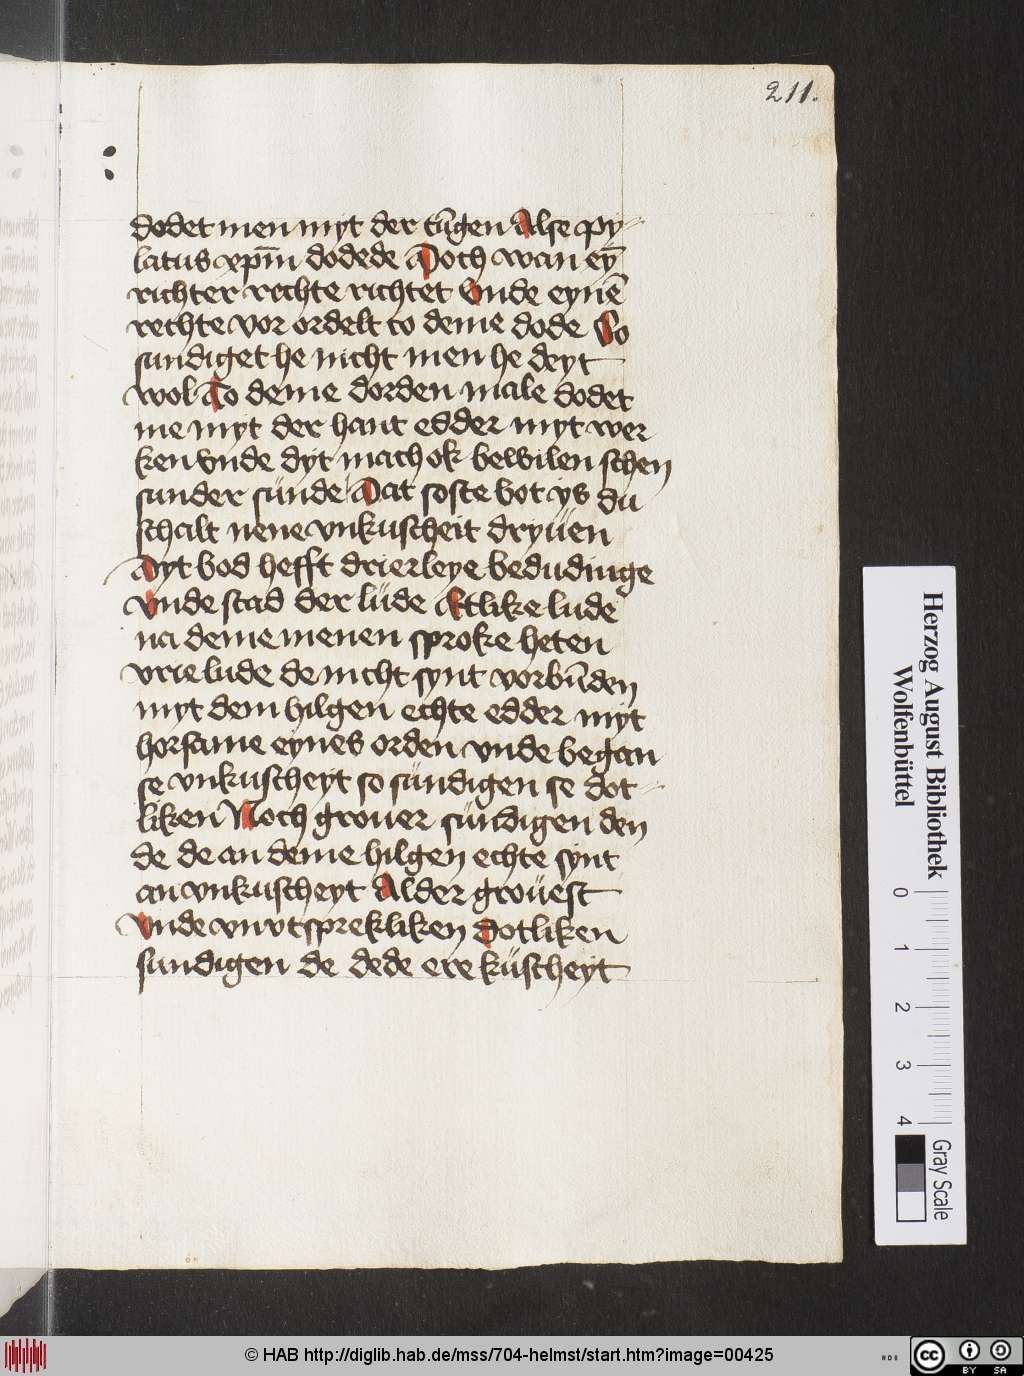 211.
dodet men myt der tūgen Alse py-
latus xpm̄ dodede Doch wan ey̅
richter rechte richtet Vnde eynē
rechte vor ordelt to deme dode So
sundiget he nicht men he deyt
wol To deme dorden male dodet
me myt der hant edder myt wer
ken vnde dyt mach ok bewilen schen
sunder sünde Dat soste bot ys du
schalt nene vnkuscheit dryüen
Dyt bod hefft drierleye bedudinge
Vnde stad der lüde Etlike lude
na deme menen sproke heten
vrie lude de nicht synt vorbūden
myt dem hilgen echte edder myt
horsame eynes orden vnde began
se vnkuscheyt so sündigen se dot-
liken Noch grouer sündigen den
de de an deme hilgen echte synt
an vnkuscheyt Alder groüest
Vnde vnvtsprekliken dotliken
sundigen de dede ere küscheyt
Herzog August Bibliothek
Wolfenbüttel
0
1
2
3
4
Gray Scale
© HAB http://diglib.hab.de/mss/704-helmst/start.htm?image=00425
cc
BY
SA